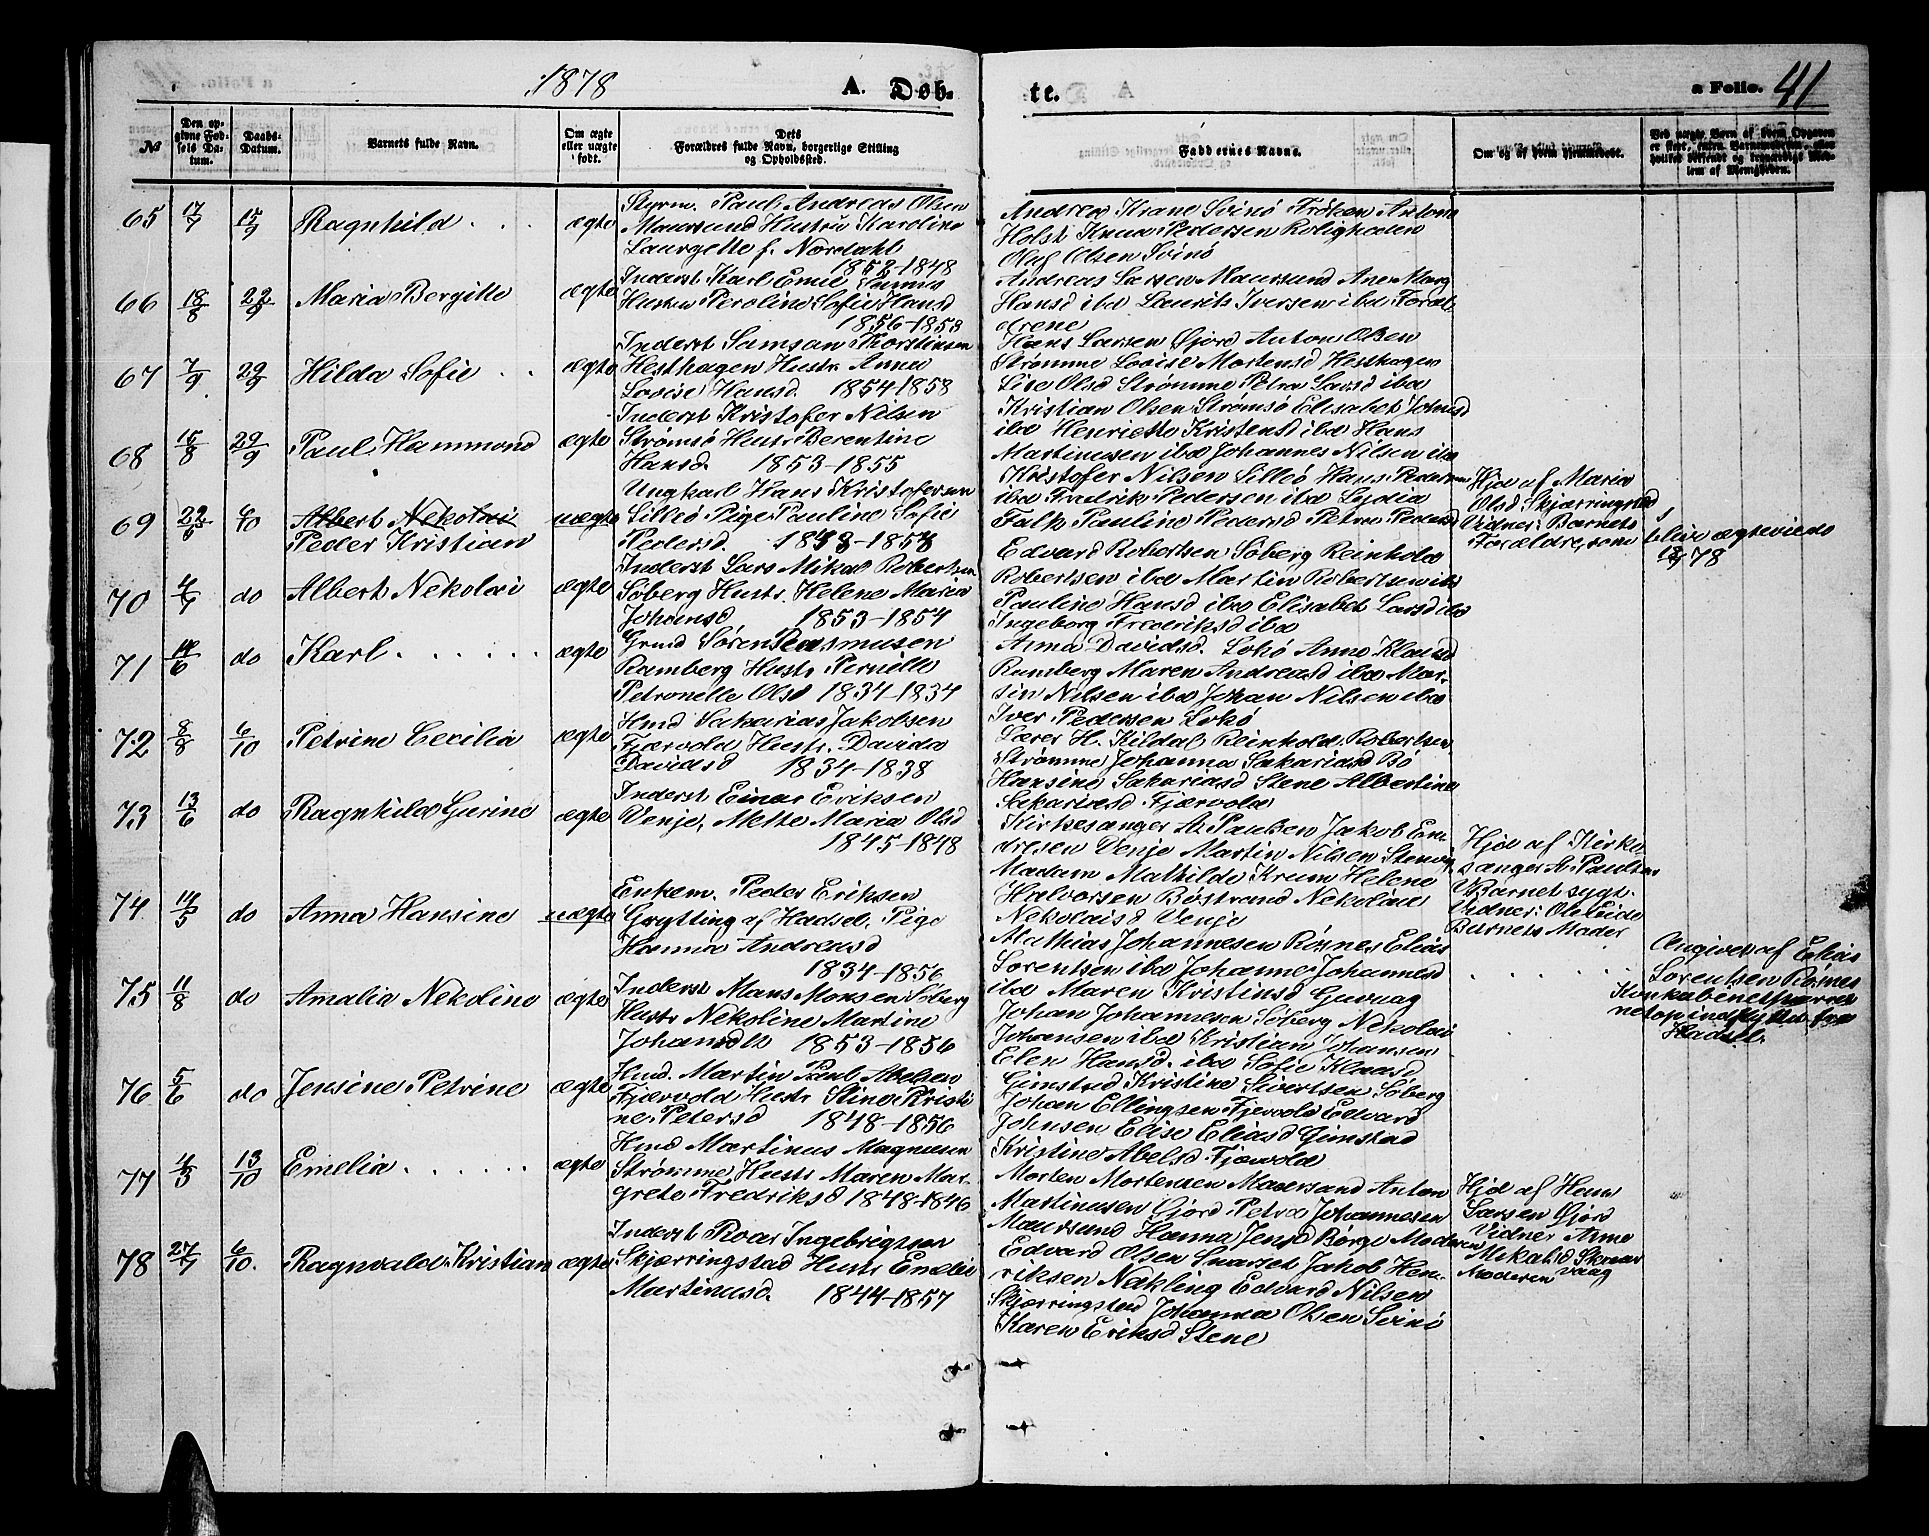 1878
A. Døb-
te.
a Folio. 41
№
Den op-
givne Fød-
sels Da-
tum.
Daabs-
Datum.
Barnets fulde Navn.
Om ægte
eller uægte
født.
Dets
Forældres fulde Navn, borgerlige Stilling
og Opholdssted.
Faddernes Navne.
Om og af hvem hjemmedøbt.
Ved uægte Børn af hvem Opgaven
er skeet, enten Barnemoderen, eller
hvilket kjendt og troværdigt Med-
lem af Menigheden.
65 17/7 15/9 Ragnhild . . . ægte
Styrm. Paul Andreas Olsen
Maursund Hustru Karoline
Laurgette f. Nordahl
1852-1848
Andrea Krane Svinø Frøken Antone
Holst Knud Pedersen Rolighalen
Oluf Olsen Svinø
66 18/8 22/9 Maria Bergitte ægte
Inderst Karl Emil
Hustru Peroline Sofie Hansd
1856-1853
Andreas Larsen Maursund Ane Marg
Hansd ibd Laurits Iversen ibd Foræl-
drene
67 7/9 29/9 Hilda Sofie . . ægte
Inderst Samsan Thorstinsen
Hesthagen Hustr. Anna
Lovise Hansd. 1854-1858
Hans Larsen Gjord Anton Olsen
Strømme Lovise Mortensd Hesthagen
Lise Olsd Strømme Petra Larsd ibd
68 15/8 29/9 Paul Hammond ægte
Inderst Kristofer Nilsen
Strømsø Hustr. Berentine
Hansd. 1853-1855
Kristian Olsen Strømsø Elisabet Johnsd
ibd Henriette Kristensd ibd Hans
Martinusen ibd Johannes Nilsen ibd
69 22/6 6/10 Albert Nekolai
Peder Kristian uægte
Ungkarl Hans Kristofersen
Lilleø Pige Pauline Sofie
Pedersd. 1853-1858
Kristofer Nilsen Lilleø Hans Pedersen
ibd Fredrik Pedersen ibd Lydia
Falk Pauline Pedersd Petra Pedersd
Hjd af Maria
Olsd Skjærringstad
Vidner: Barnets
Forældre, som
blive ægteviede
78
70 4/7 do Albert Nekolai ægte
Inderst Lars Mikal Robertsen
Søberg Hustr. Helene Maria
Johansd 1853-1854
Edvard Robertsen Søberg Reinhold
Robertsen ibd Martin Robertsen ibd
Pauline Hansd ibd Elisabet Larsd ibd
Ingeborg Frederiksd ibd
71 14/6 do Karl . . . . . . ægte
Grmd Søren Rasmusen
Ramberg Hustr. Pernille
Petronelle Olsd 1834-1834
Anna Davidsd. Lokø Anne Klausd
Ramberg Maren Andreasd ibd Mar-
tin Nilsen ibd Johan Nilsen ibd
Iver Pedersen Lokø
72 8/8 6/10 Petrine Cecilia ægte
Hmd Sakarias Jakobsen
Fjærvold Hustr. Davida
Davidsd 1834-1838
Lærer H. Kildal Reinhold Robertsen
Strømme Johanna Sakariasd Bø
Hansine Sakariasd Stene Albertine
Sakariasd Fjærvold
73 13/6 do Ragnhild Gurine ægte
Inderst Einar Eriksen
Venje, Mette Maria Olsd
1845-1848
Kirkesanger A. Paulsen Jakob En-
dresen Venje Martin Nilsen Stenv.
Madam Mathilde Krum Helene
Hjd af Kirke-
sanger A. Paulsen
Barnet sygt.
Vidner: Ole Eide
Barnets Moder
74 14/5 do Anna Hansine uægte
Enkem. Peder Eriksen
Grytting af Hadsel. Pige
Hanna Andreasd
1834-1856
Halvorsen Bøstrand Nekolai
Nekolaisd Venje
Mathias Johannesen Røsnes Elias
Sorentsen ibd Johanne Johannesd
ibd Maren Kristinsd Guvaag
Angivet af Elias
Sorentsen Røsnes
Konkubinetparret
netop indflyttet fra
Hadsel.
75 11/8 do Amalia Nekoline ægte
Inderst Mans Monsen Søberg
Hustr Nekoline Martine
Johansdtr 1853-1856
Johan Johannesen Søberg Nekolai
Johansen ibd Kristian Johansen
Elen Hansd. ibd Sofie Klausd
76 5/6 do Jensine Petrine ægte
Hmd. Martin Paul Abelsen
Fjærvold Hustr Stine Kristi
ne Petersd 1848-1856
Gimstad Kristine Sivertsen Søberg
Johan Ellingsen Fjærvold Edvard
Johnsen Elise Eliasd Gimstad
Kristine Abelsd Fjærvold
77 4/5 13/10 Emelia . . . . . . ægte
Hmd Martinus Magnusen
Strømme Hustr Maren Mar-
grete Fredriksd 1848-1846
Morten Mortensen Maursund Anton
Martinusen Gjord Petra Johannesen
Maursund Hanna Jensd Børge Moderen
Hjd af Hans
Larsen Gjord
Vidner Anne
Mikalsd Skonar
vaag
Moderen
78 27/7 6/10. Ragnvald Kristian ægte
Inderst Roar Ingebrigtsen
Skjærringstad Hustr Emelie
Martinusd. 1844-1857
Edvard Olsen Snarset Jakob Hen-
riksen Nakling Edvard Nilsen
Skjærringstad Johanna Olsen Svinø
Karen Eriksd Stene